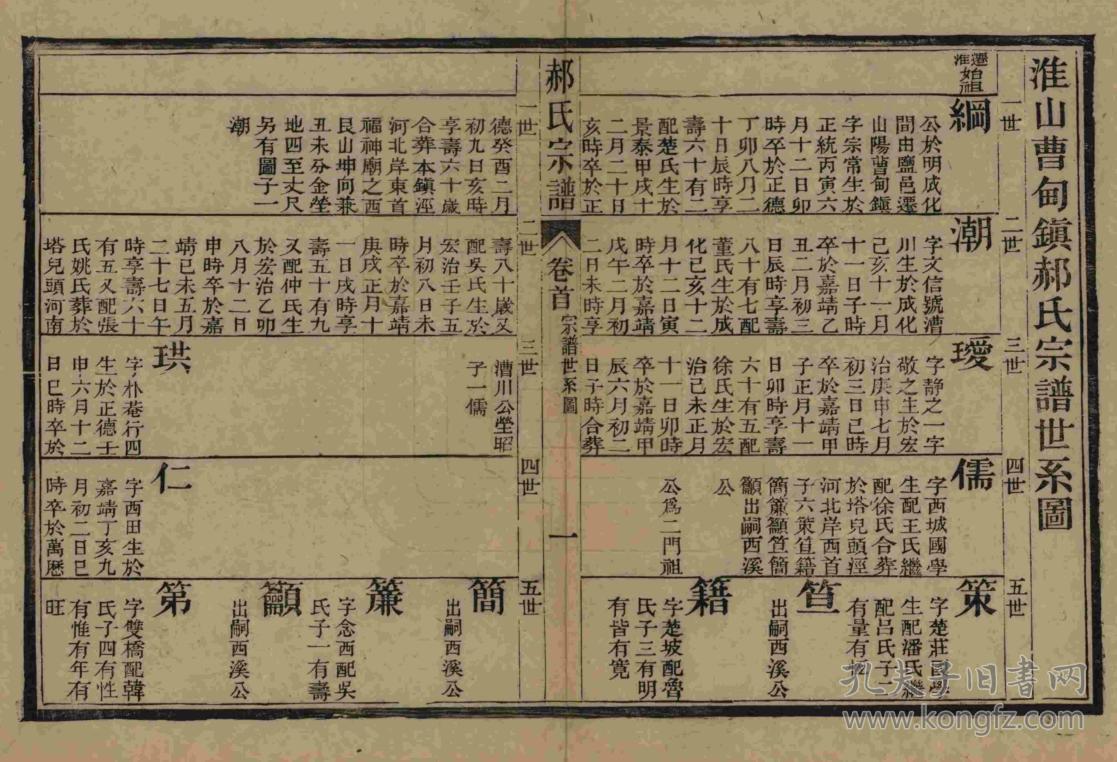 淮山曹甸鎮郝氏宗譜世系圖
一世
遷淮始祖
綱
公於明成化
間由鹽邑遷
山陽曹甸鎮
字宗常生於
正統丙寅六
月十二日卯
時卒於正德
丁卯八月二
十日辰時享
壽六十有二
配楚氏生於
景泰甲戌十
二月二十日
亥時卒於正
德癸酉二月
初九日亥時
享壽六十歲
合葬本鎮涇
河北岸東首
福神廟之西
艮山坤向兼
丑未分金塋
地四至丈尺
另有圖子一
潮
二世
潮
字文信號漕
川生於成化
己亥十一月
十一日子時
卒於嘉靖乙
丑二月初三
日辰時享壽
八十有七配
董氏生於成
化己亥十二
月十二日寅
時卒於嘉靖
戊午二月初
二日未時享
壽八十歲又
配吳氏生於
宏治壬子五
月初八日未
時卒於嘉靖
庚戌正月十
一日戌時享
壽五十有九
又配仲氏生
於宏治乙卯
八月十二日
申時卒於嘉
靖己未五月
二十七日午
時享壽六十
有五又配張
氏姚氏葬於
塔兒頭河南
三世
璦
字静之一字
敬之生於宏
治庚申七月
初三日巳時
卒於嘉靖甲
子正月十一
日卯時享壽
六十有五配
徐氏生於宏
治己未正月
十一日卯時
卒於嘉靖甲
辰六月初二
日子時合葬
漕川公塋昭
子一儒
珙
字朴菴行四
生於正德壬
申六月十二
日巳時卒於
四世
儒
字西城國學
生配王氏繼
配徐氏合葬
於塔兒頭涇
河北岸西首
子六策笪籍
簡簾籲笪簡
籲出嗣西溪
公
公爲二門祖
仁
字西田生於
嘉靖丁亥九
月初二日巳
時卒於萬歷
五世
策
字楚莊國學
生配潘氏繼
配呂氏子二
有量有
笪
出嗣西溪公
籍
字楚坡配魯
氏子三有明
有皆有寬
簡
出嗣西溪公
簾
字念西配吳
氏子一有壽
籲
出嗣西溪公
第
字雙橋配韓
氏子四有性
有惟有年有
旺
郝氏宗譜
卷首
宗譜世系圖
一
一世
二世
三世
四世
五世
孔夫子旧书网
www.kongfz.com